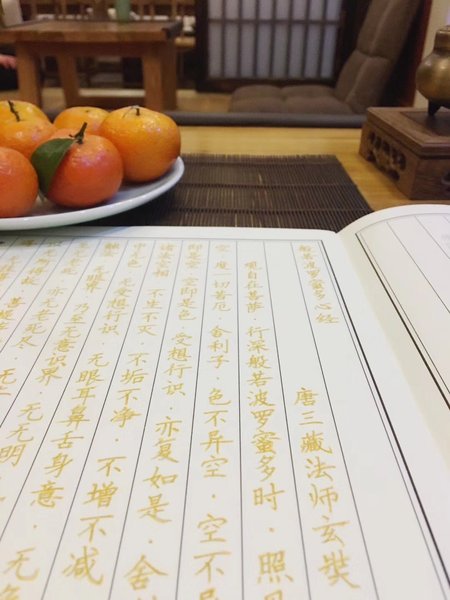 般若波罗蜜多心经 唐三藏法师玄奘
观自在菩萨·行深般若波罗蜜多时·照
空·度一切苦厄·舍利子·色不异空·空不
即是空·空即是色·受想行识·亦复如是·舍
诸法空相·不生不灭·不垢不净·不增不减
中无色·无受想行识·无眼耳鼻舌身意·无色
无眼界·乃至无意识界·无无明
亦无老死尽·无
无得故·菩提